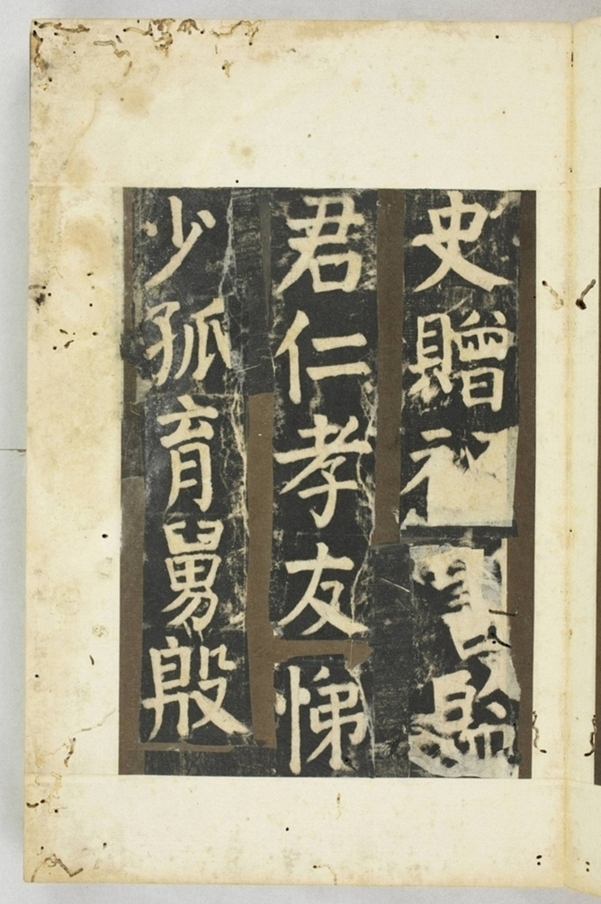 史贈
君仁孝友悌
少孤育舅殷